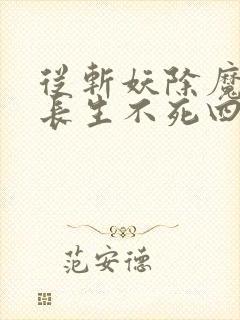 從斬妖除魔
長生不死四
范安德